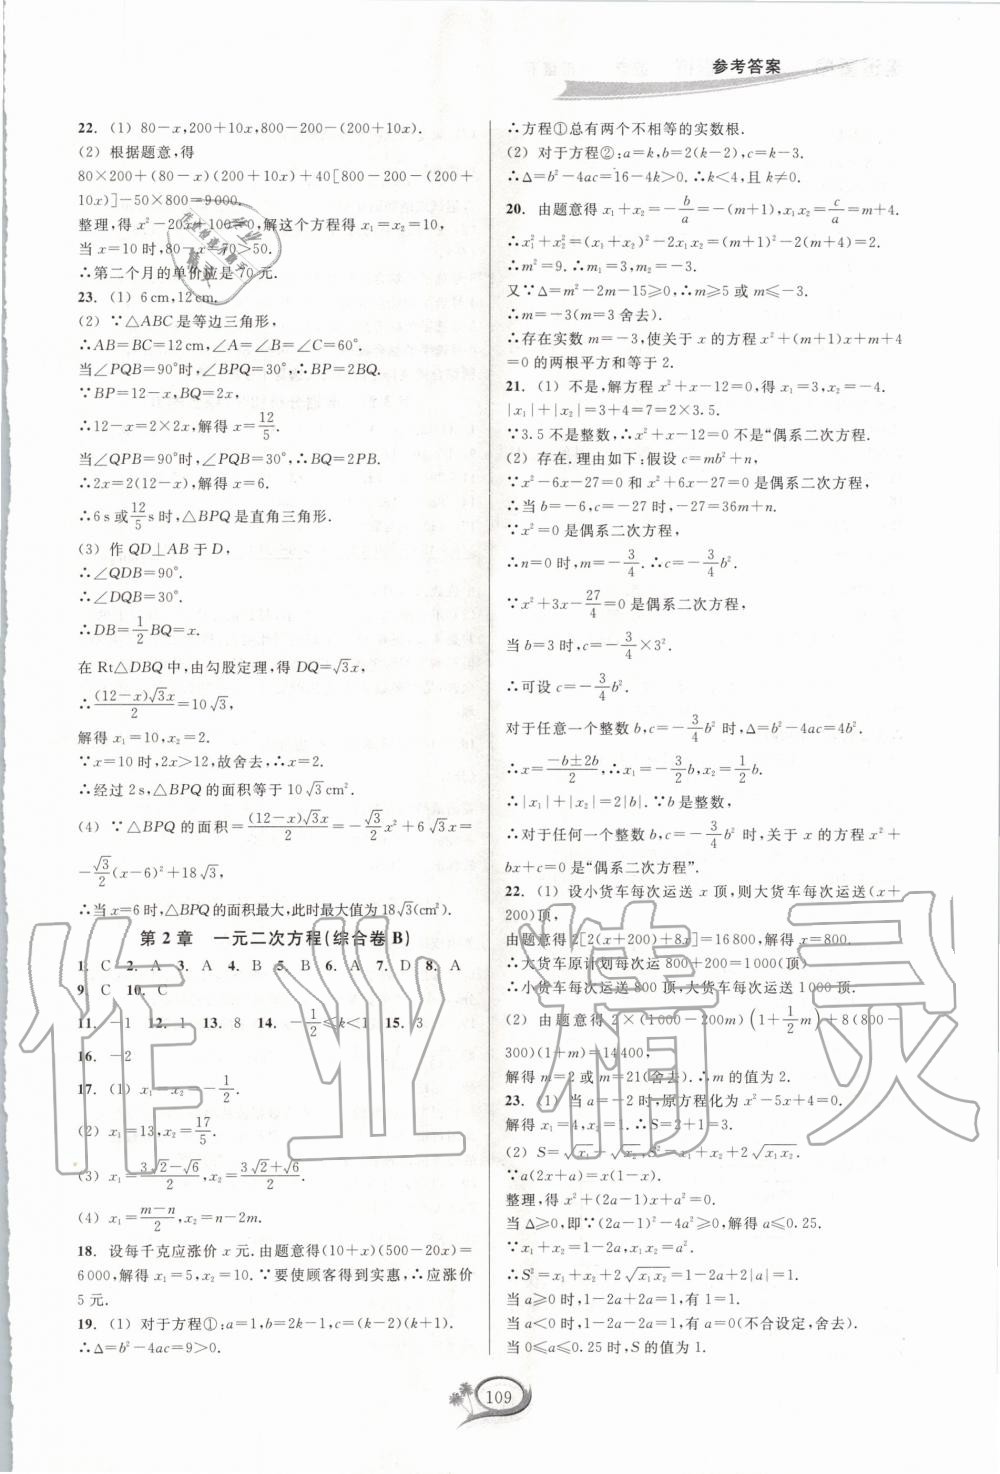 参考答案
22. (1) 80-x,200+10x,800-200-(200+10x).
(2) 根据题意,得
80×200+(80-x)(200+10x)+40[800-200-(200+
10x)]-50×800=9000.
整理,得 x²-20x+100=0,解这个方程得 x₁=x₂=10,
当 x=10 时,80-x=70>50.
∴第二个月的单价应是 70 元.
23. (1) 6cm,12cm.
(2) ∵△ABC 是等边三角形,
∴AB=BC=12cm,∠A=∠B=∠C=60°.
当∠PQB=90°时,∠BPQ=30°,∴BP=2BQ.
∵BP=12-x,BQ=2x,
∴12-x=2×2x,解得 x=12/5.
当∠QPB=90°时,∠PQB=30°,∴BQ=2PB.
∴2x=2(12-x),解得 x=6.
∴6s 或12/5s 时,△BPQ 是直角三角形.
(3) 作 QD⊥AB 于 D,
∴∠QDB=90°.
∴∠DQB=30°.
∴DB=1/2BQ=x.
在 Rt△DBQ 中,由勾股定理,得 DQ=√3x,
∴(12-x)√3x/2=10√3,
解得 x₁=10,x₂=2.
∵x=10 时,2x>12,故舍去,∴x=2.
∴经过 2s,△BPQ 的面积等于 10√3cm².
(4) ∵△BPQ 的面积=(12-x)√3x/2=-√3/2x²+6√3x=
-√3/2(x-6)²+18√3,
∴当 x=6 时,△BPQ 的面积最大,此时最大值为 18√3(cm²).
第 2 章 一元二次方程(综合卷 B)
1. C 2. A 3. A 4. B 5. B 6. A 7. D 8. A
9. C 10. C
11. -1 12. 1 13. 8 14. -1/2≤k<1 15. 3
16. -2
17. (1) x₁=x₂=-1/2.
(2) x₁=13,x₂=17/5.
(3) x₁=3√2-√6/2,x₂=3√2+√6/2.
(4) x₁=m-n/2,x₂=n-2m.
18. 设每千克应涨价 x 元.由题意得(10+x)(500-20x)=
6000,解得 x₁=5,x₂=10.∵要使顾客得到实惠,∴应涨价
5 元.
19. (1) 对于方程①:a=1,b=2k-1,c=(k-2)(k+1).
∴Δ=b²-4ac=9>0.
∴方程①总有两个不相等的实数根.
(2) 对于方程②:a=k,b=2(k-2),c=k-3.
∴Δ=b²-4ac=16-4k>0.∴k<4,且 k≠0.
20. 由题意得 x₁+x₂=-b/a=-(m+1),x₁x₂=c/a=m+4.
∴x₁²+x₂²=(x₁+x₂)²-2x₁x₂=(m+1)²-2(m+4)=2.
∴m²=9.∴m₁=3,m₂=-3.
又∵Δ=m²-2m-15≥0,∴m≥5 或 m≤-3.
∴m=-3(m=3 舍去).
∴存在实数 m=-3,使关于 x 的方程 x²+(m+1)x+m+4
=0 的两根平方和等于 2.
21. (1) 不是,解方程 x²+x-12=0,得 x₁=3,x₂=-4.
|x₁|+|x₂|=3+4=7=2×3.5.
∵3.5 不是整数,∴x²+x-12=0 不是“偶系二次方程.
(2) 存在.理由如下:假设 c=mb²+n,
∵x²-6x-27=0 和 x²+6x-27=0 是偶系二次方程,
∴当 b=-6,c=-27 时,-27=36m+n.
∵x²=0 是偶系二次方程,
∴n=0 时,m=-3/4.∴c=-3/4b².
∵x²+3x-27/4=0 是偶系二次方程,
当 b=3 时,c=-3/4×3².
∴可设 c=-3/4b².
对于任意一个整数 b,c=-3/4b² 时,Δ=b²-4ac=4b².
∴x=-b±2b/2,∴x₁=-3/2b,x₂=1/2b.
∴|x₁|+|x₂|=2|b|.∵b 是整数,
∴对于任何一个整数 b,c=-3/4b² 时,关于 x 的方程 x²+
bx+c=0 是“偶系二次方程”.
22. (1) 设小货车每次运送 x 顶,则大货车每次运送(x+
200)顶,
由题意得 2[2(x+200)+8x]=16800,解得 x=800,
∴大货车原计划每次运 800+200=1000(顶)
∴小货车每次运送 800 顶,大货车每次运送 1000 顶.
(2) 由题意得 2×(1000-200m)(1+1/2m)+8(800-
300)(1+m)=14400,
解得 m=2 或 m=21(舍去).∴m 的值为 2.
23. (1) 当 a=-2 时,原方程化为 x²-5x+4=0.
解得 x₁=4,x₂=1.∴S=2+1=3.
(2) S=√x₁+√x₂,S²=x₁+x₂+2√x₁x₂.
∵a(2x+a)=x(1-x).
整理,得 x²+(2a-1)x+a²=0.
当 Δ≥0,即∵(2a-1)²-4a²≥0,解得 a≤0.25.
∵x₁+x₂=1-2a,x₁x₂=a².
∴S²=x₁+x₂+2√x₁x₂=1-2a+2|a|=1.
当 a≥0 时,1-2a+2a=1,有 1=1.
当 a<0 时,1-2a-2a=1,有 a=0(不合设定,舍去).
当 0≤a≤0.25 时,S 的值为 1.
109
作业精灵